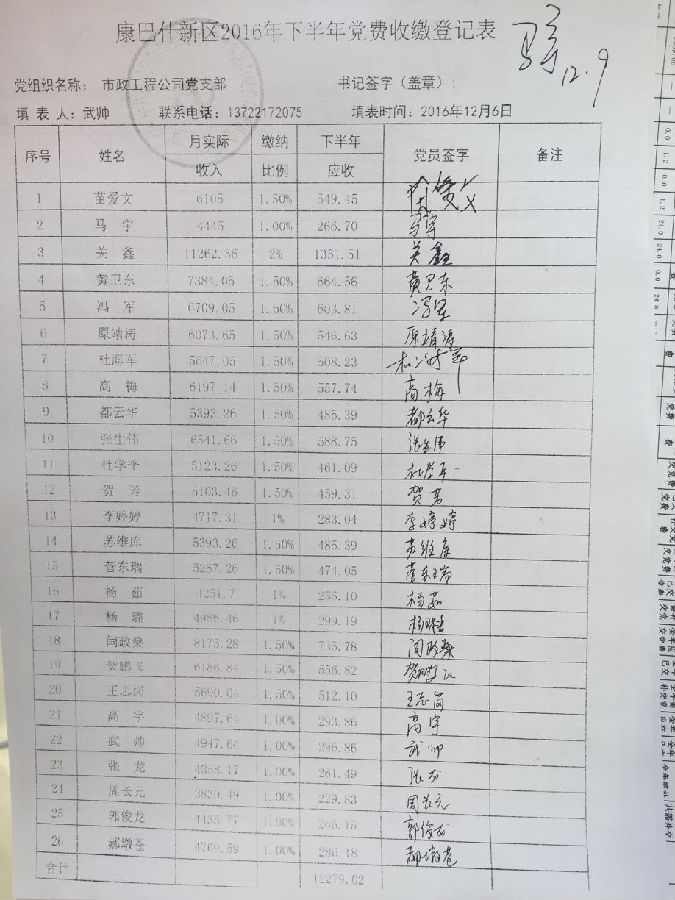 康巴什新区2016年下半年党费收缴登记表
12.9
党组织名称: 市政工程公司党支部 书记签字（盖章）:
填 表 人: 武帅 联系电话: 13722172075 填表时间: 2016年12月6日
序号 姓名 月实际收入 缴纳比例 下半年应收 党员签字 备注
1 6105 1.50% 549.45
2 马 宇 4445 1.00% 266.70 马宇
3 关 鑫 11262.56 2% 1351.51 关鑫
4 黄卫东 7384.05 1.50% 664.56 黄卫东
5 冯 军 6709.05 1.50% 603.81 冯军
6 原靖涛 6073.65 1.50% 546.63 原靖涛
7 杜海军 5647.05 1.50% 508.23 杜海军
8 高 梅 6197.14 1.50% 557.74 高梅
9 都云华 5393.26 1.50% 485.39 都云华
10 张生伟 6541.66 1.50% 588.75 张生伟
11 杜学平 5123.26 1.50% 461.09 杜学平
12 贺 芳 5103.46 1.50% 459.31 贺芳
13 李婷婷 4717.31 1% 283.04 李婷婷
14 苏维库 5393.26 1.50% 485.39 苏维库
15 5267.26 1.50% 474.05
16 杨 茹 4251.7 1% 255.10 杨茹
17 杨 璐 4986.46 1% 299.19 杨璐
18 闫政燊 8175.28 1.50% 735.78 闫政燊
19 贺鹏飞 6186.84 1.50% 556.82 贺鹏飞
20 王志岗 5690.04 1.50% 512.10 王志岗
21 高 宇 4897.64 1.00% 293.86 高宇
22 武 帅 4947.64 1.00% 296.86 武帅
23 张 龙 4358.17 1.00% 261.49 张龙
24 周长元 3830.49 1.00% 229.83 周长元
25 郭俊龙 4435.77 1.00% 266.15 郭俊龙
26 郝墩苍 4769.59 1.00% 286.18
合计 12279.02